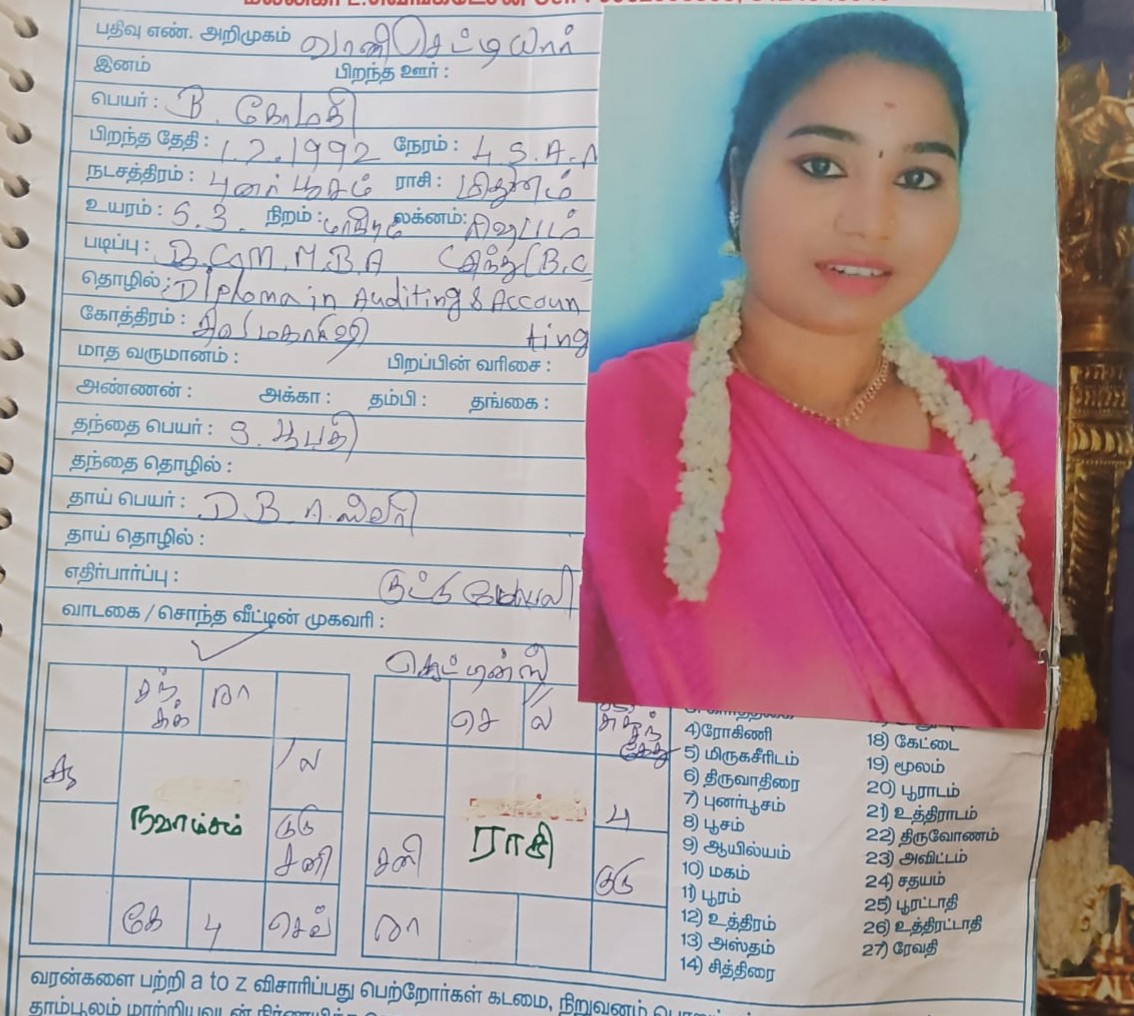 பதிவு எண். அறிமுகம் வாணி செட்டியார்
இனம் பிறந்த ஊர் :
பெயர் : B. கோமதி
பிறந்த தேதி : 1.2.1992 நேரம் : 4.5.A.
நடசத்திரம் : புனர்பூசம் ராசி : மிதுனம்
உயரம் : 5.3. நிறம் : மாநிறம் லக்னம் : ரிஷபம்
படிப்பு : B.Com. M.B.A (இந்து (B.C
தொழில் : Diploma in Auditing & Accoun
கோத்திரம் : சிவமகாரிஷி ting
மாத வருமானம் : பிறப்பின் வரிசை :
அண்ணன் : அக்கா : தம்பி : தங்கை :
தந்தை பெயர் : S. பூபதி
தந்தை தொழில் :
தாய் பெயர் : D.B.
தாய் தொழில் :
எதிர்பார்ப்பு :
வாடகை / சொந்த வீட்டின் முகவரி :
சந் சுக் லா
செ ல
சுக் சந் கேது
சூ ல
நவாம்சம்
குரு சனி
கே பு செவ்
ராசி
பு
சனி குரு
ரா
4) ரோகிணி
5) மிருகசீரிடம்
6) திருவாதிரை
7) புனர்பூசம்
8) பூசம்
9) ஆயில்யம்
10) மகம்
11) பூரம்
12) உத்திரம்
13) அஸ்தம்
14) சித்திரை
18) கேட்டை
19) மூலம்
20) பூராடம்
21) உத்திராடம்
22) திருவோணம்
23) அவிட்டம்
24) சதயம்
25) பூரட்டாதி
26) உத்திரட்டாதி
27) ரேவதி
வரன்களை பற்றி a to z விசாரிப்பது பெற்றோர்கள் கடமை, நிறுவனம்
தாம்பூலம் மாற்றியவுடன்